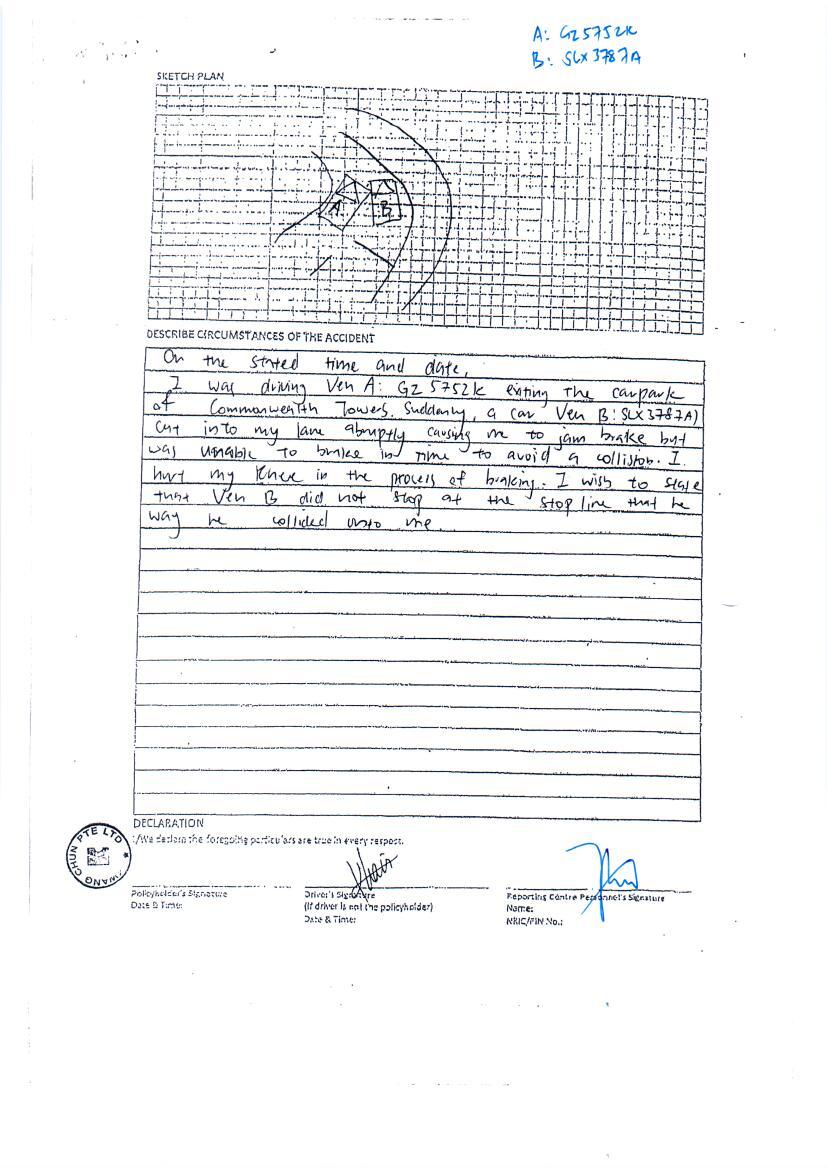 A: GZ5752K
B: SLX3787A
SKETCH PLAN
A
B
DESCRIBE CIRCUMSTANCES OF THE ACCIDENT
On the stated time and date,
I was driving Veh A: GZ 5752K exiting the carpark
of Commonwealth Towers. Suddenly, a car Veh B: SLX3787A)
cut into my lane abruptly causing me to jam brake but
was unable to brake in time to avoid a collision. I
hurt my knee in the process of braking. I wish to state
that Veh B did not stop at the stop line that he
way he collided onto me.
DECLARATION
I/We declare the foregoing particulars are true in every respect.
CHUN PTE LTD
Policyholder's Signature
Date & Time:
Driver's Signature
(If driver is not the policyholder)
Date & Time:
Reporting Centre Personnel's Signature
Name:
NRIC/FIN No.: